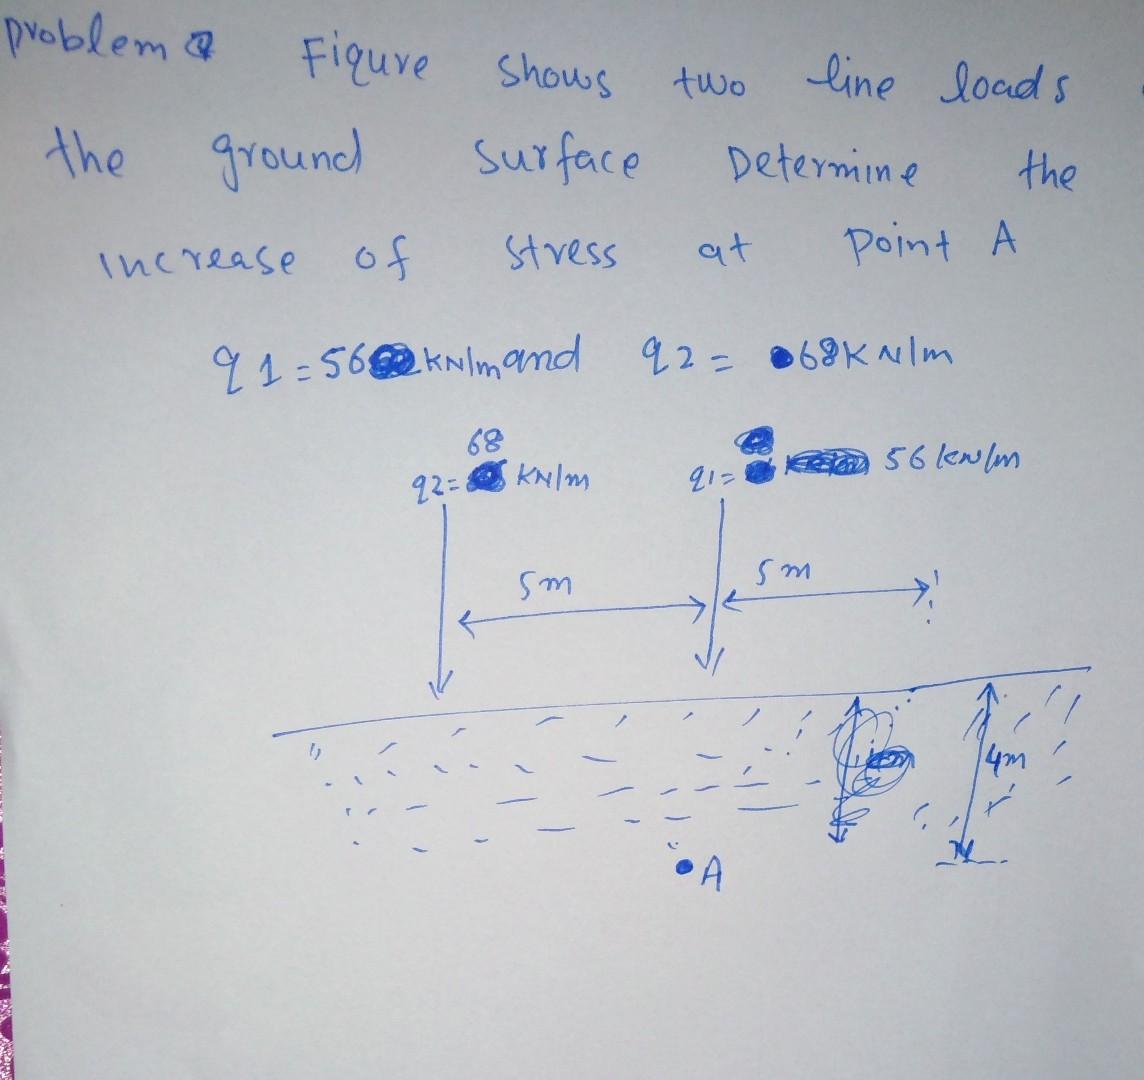 problem Figure Shows two line loads
the ground surface Determine the
increase of stress at point A
q1 = 56 kN/m and q2 = 68 KN/m
68
q2= KN/m q1= 56 kN/m
5m 5m
4m
A